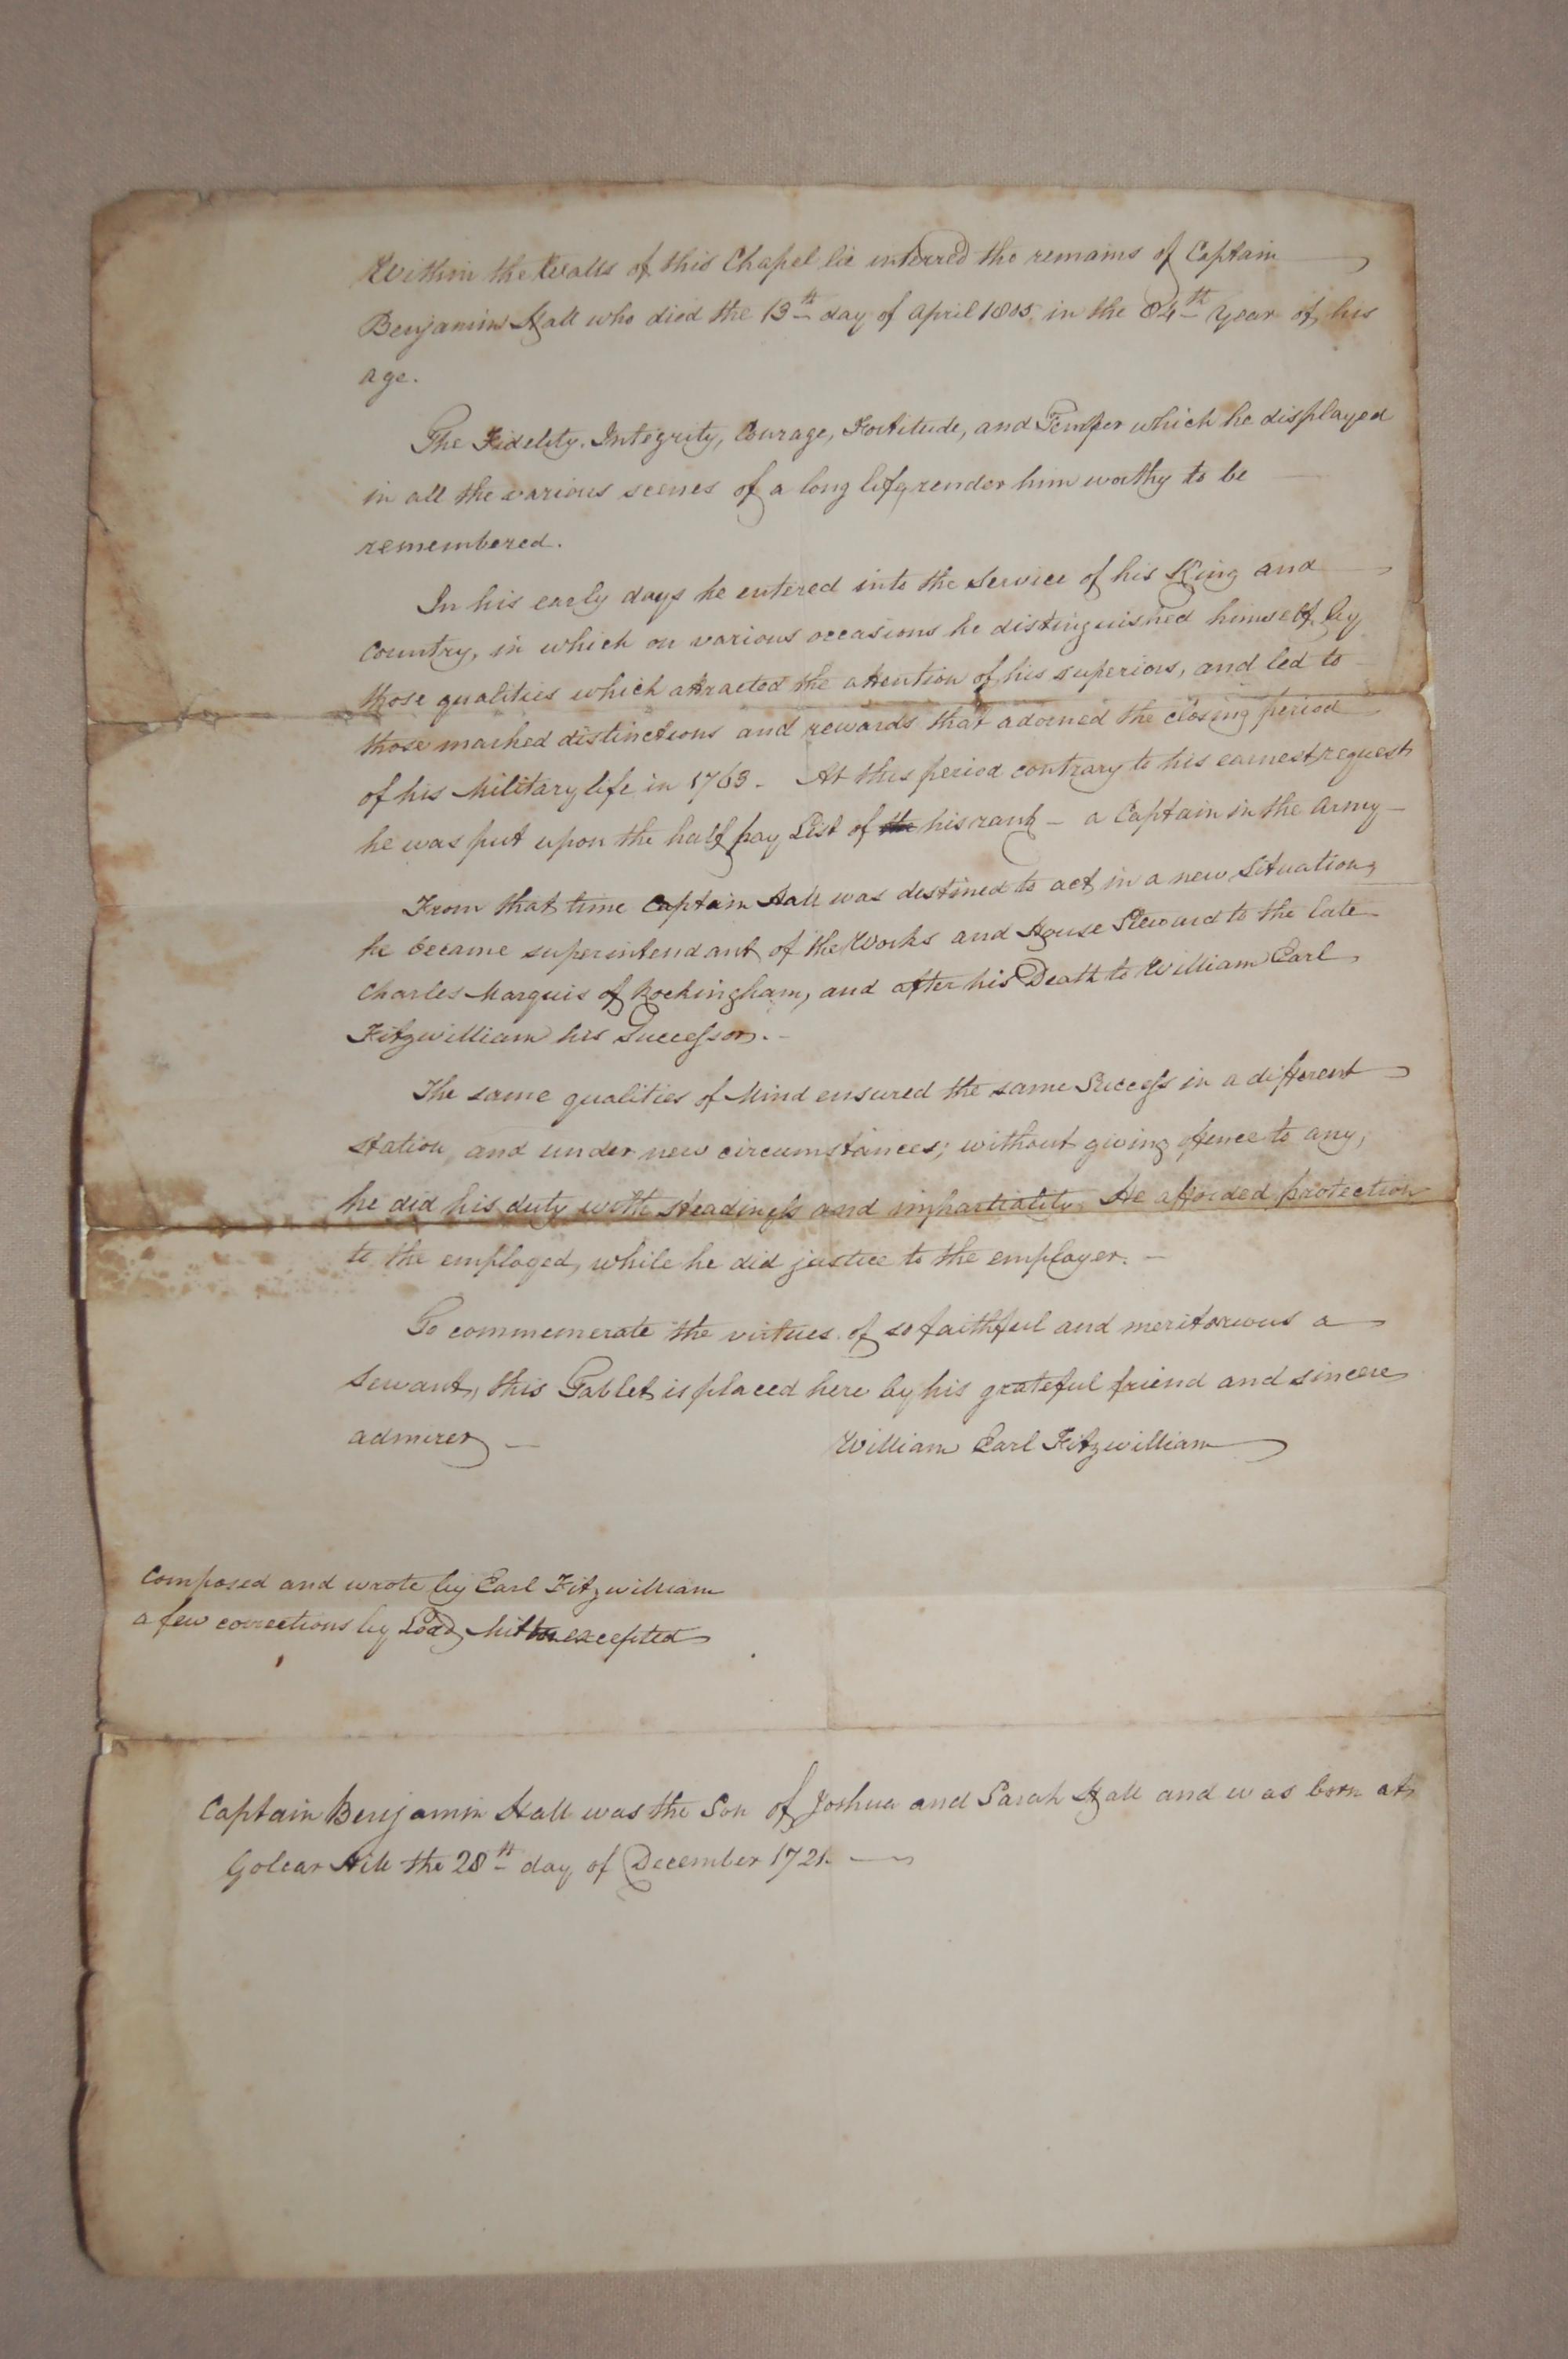 Within the Walls of this Chapel lie interred the remains of Captain
Benjamin Hall who died the 13th day of April 1805 in the 84th Year of his
age.
The Fidelity, Integrity, Courage, Fortitude, and Temper which he displayed
in all the various scenes of a long life, render him worthy to be
remembered.
In his early days he entered into the Service of his King and
Country, in which on various occasions he distinguished himself by
those qualities which attracted the attention of his superiors, and led to
those marked distinctions and rewards that adorned the closing period
of his Military life in 1763. At this period contrary to his earnest request
he was put upon the half pay List of the his rank - a Captain in the Army -
From that time Captain Hall was destined to act in a new Situation,
he became superintendant of the Works and House Steward to the late
Charles Marquis of Rockingham, and after his Death to William Earl
Fitzwilliam his Successor. -
The same qualities of Mind ensured the same Success in a different
station, and under new circumstances; without giving offence to any,
he did his duty with steadiness and impartiality. He afforded protection
to the employed, while he did justice to the employer. -
To commemorate the virtues of so faithful and meritorious a
Servant, this Tablet is placed here by his grateful friend and sincere
admirer -
William Earl Fitzwilliam
Composed and wrote by Earl Fitzwilliam
a few corrections by Lord Milton excepted
Captain Benjamin Hall was the Son of Joshua and Sarah Hall and was born at
Golcar Hill the 28th day of December 1721. -